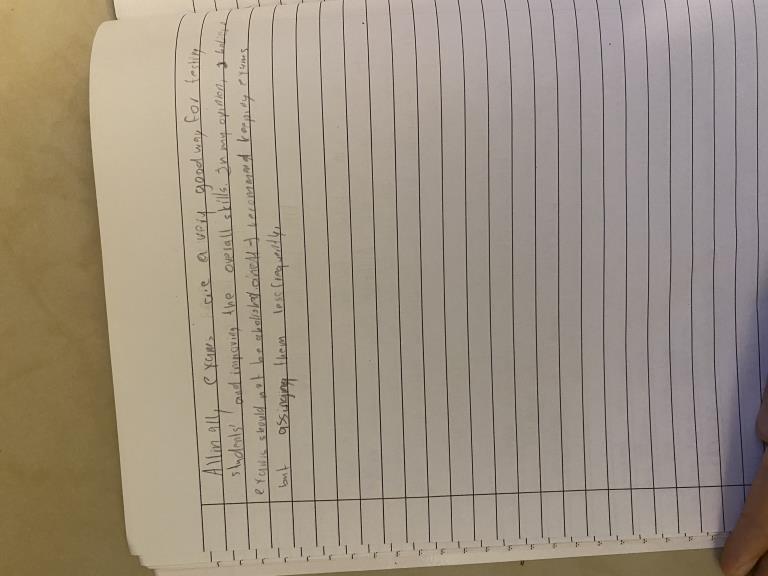 All in all, exams are a very good way for testing
students' and improving the overall skills. In my opinion, I
exams should not be abolished and I recommend keeping exams
but assinging them less frequently.